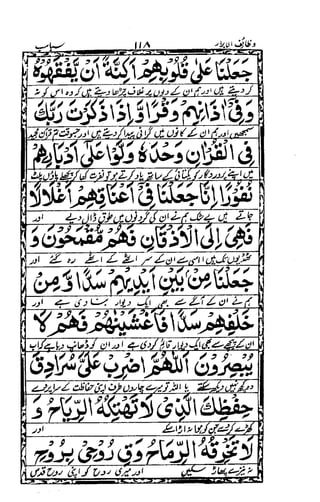 وظائف الابرار ۱۱۸
جَعَلْنَا عَلٰى قُلُوْبِهِمْ اَكِنَّةً اَنْ يَّفْقَهُوْهُ
کر دیتے ہیں اور ہم ان کے دلوں پر غلاف چڑھا دیتے ہیں کہ وہ اس کو نہ
وَفِىْ اٰذَانِهِمْ وَقْرًا وَاِذَا ذَكَرْتَ رَبَّكَ
سمجھیں اور ہم ان کے کانوں میں گرانی پیدا کر دیتے ہیں اور جسوقت تم قرآن مجید
فِى الْقُرْاٰنِ وَحْدَهٗ وَلَّوْا عَلٰى اَدْبَارِهِمْ
میں اپنے پروردگار کو یکتائی کے ساتھ یاد کرتے ہو تو نفرت کھا کر پچھلے پاؤں پلٹ
نُفُوْرًا اِنَّا جَعَلْنَا فِىْ اَعْنَاقِهِمْ اَغْلَالًا
جاتے ہیں بے شک ہم نے ان کی گردنوں میں طوق ڈال دیے اور
فَهِىَ اِلَى الْاَذْقَانِ فَهُمْ مُّقْمَحُوْنَ وَ
ٹھڈیوں تک ہیں اسی سے ان کے سر اٹھے کے اٹھے رہ گئے اور
جَعَلْنَا مِنْ بَيْنِ اَيْدِيْهِمْ سَدًّا وَّ مِنْ
ہم نے ان کے آگے سے بھی ایک دیوار بنا دی ہے اور
خَلْفِهِمْ سَدًّا فَاَغْشَيْنٰهُمْ فَهُمْ لَا
ان کے پیچھے سے بھی ایک دیوار قائم کر دی ہے اور ان کو ڈھانپ دیا ہے کہ اب
يُبْصِرُوْنَ اَللّٰهُمَّ اضْرِبْ عَلَىَّ سُرَادِقَ
وہ کچھ نہیں دیکھ سکتے یا اللہ تو میرے چاروں طرف اپنی حفاظت کے سراپردے
حِفْظِكَ الَّذِىْ لَا تَهْتِكُهُ الرِّيَاحُ وَ
کھڑے کر دے جن کو ہوا نہ اڑا سکے اور
لَا تَخْرِقُهُ الرِّمَاحُ وَقِ رُوْحِىْ بِرُوْحِ
نہ نیزے پھاڑ سکیں اور میری روح کو اپنی روح قدس